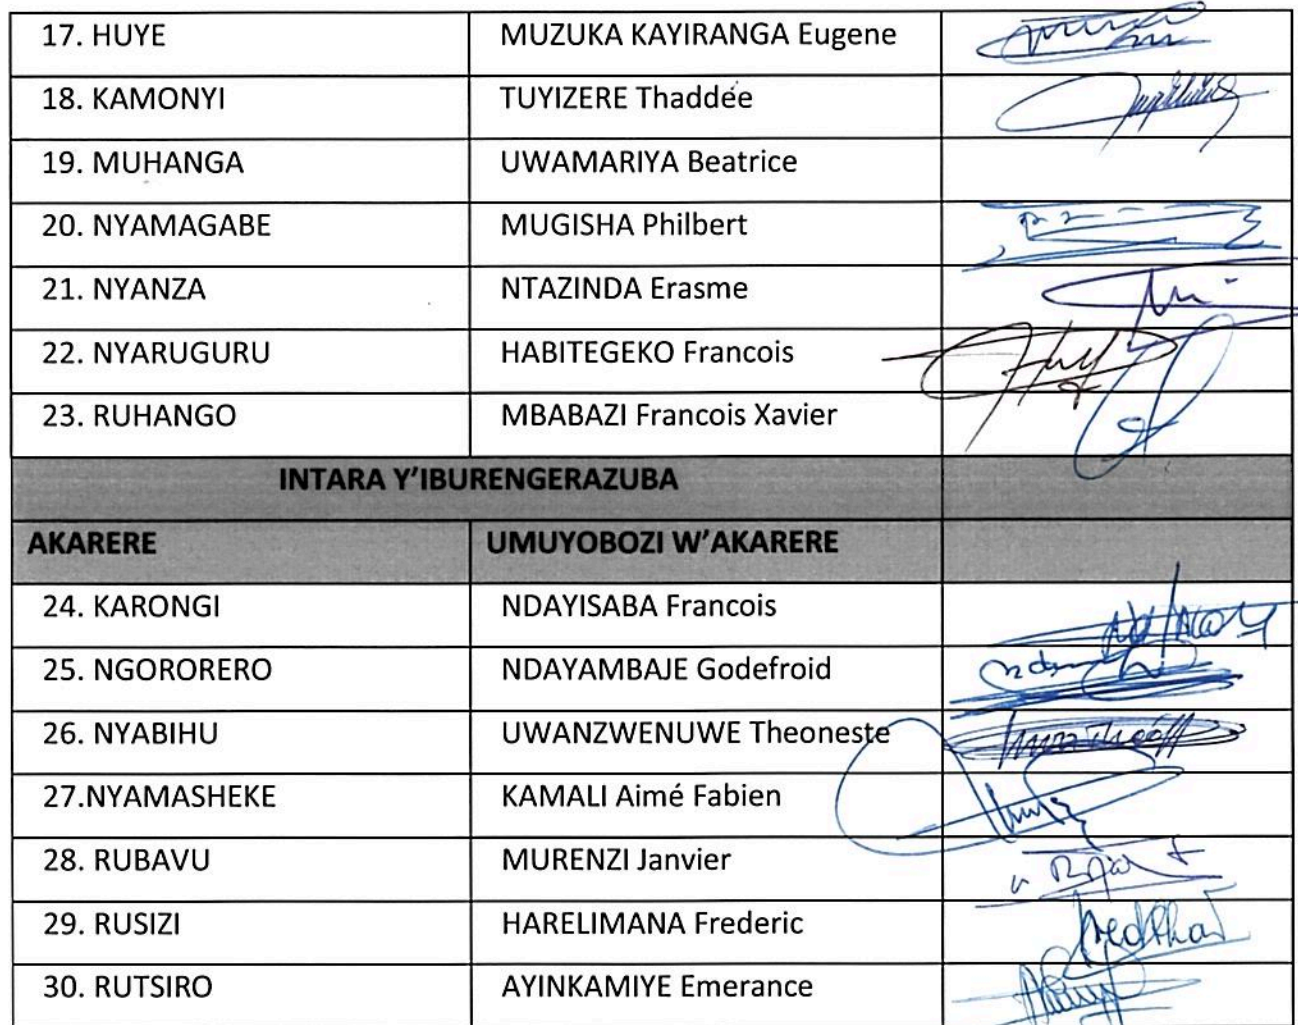 17. HUYE MUZUKA KAYIRANGA Eugene
18. KAMONYI TUYIZERE Thaddée
19. MUHANGA UWAMARIYA Beatrice
20. NYAMAGABE MUGISHA Philbert
21. NYANZA NTAZINDA Erasme
22. NYARUGURU HABITEGEKO Francois
23. RUHANGO MBABAZI Francois Xavier
INTARA Y'IBURENGERAZUBA
AKARERE UMUYOBOZI W'AKARERE
24. KARONGI NDAYISABA Francois
25. NGORORERO NDAYAMBAJE Godefroid
26. NYABIHU UWANZWENUWE Theoneste
27.NYAMASHEKE KAMALI Aimé Fabien
28. RUBAVU MURENZI Janvier
29. RUSIZI HARELIMANA Frederic
30. RUTSIRO AYINKAMIYE Emerance